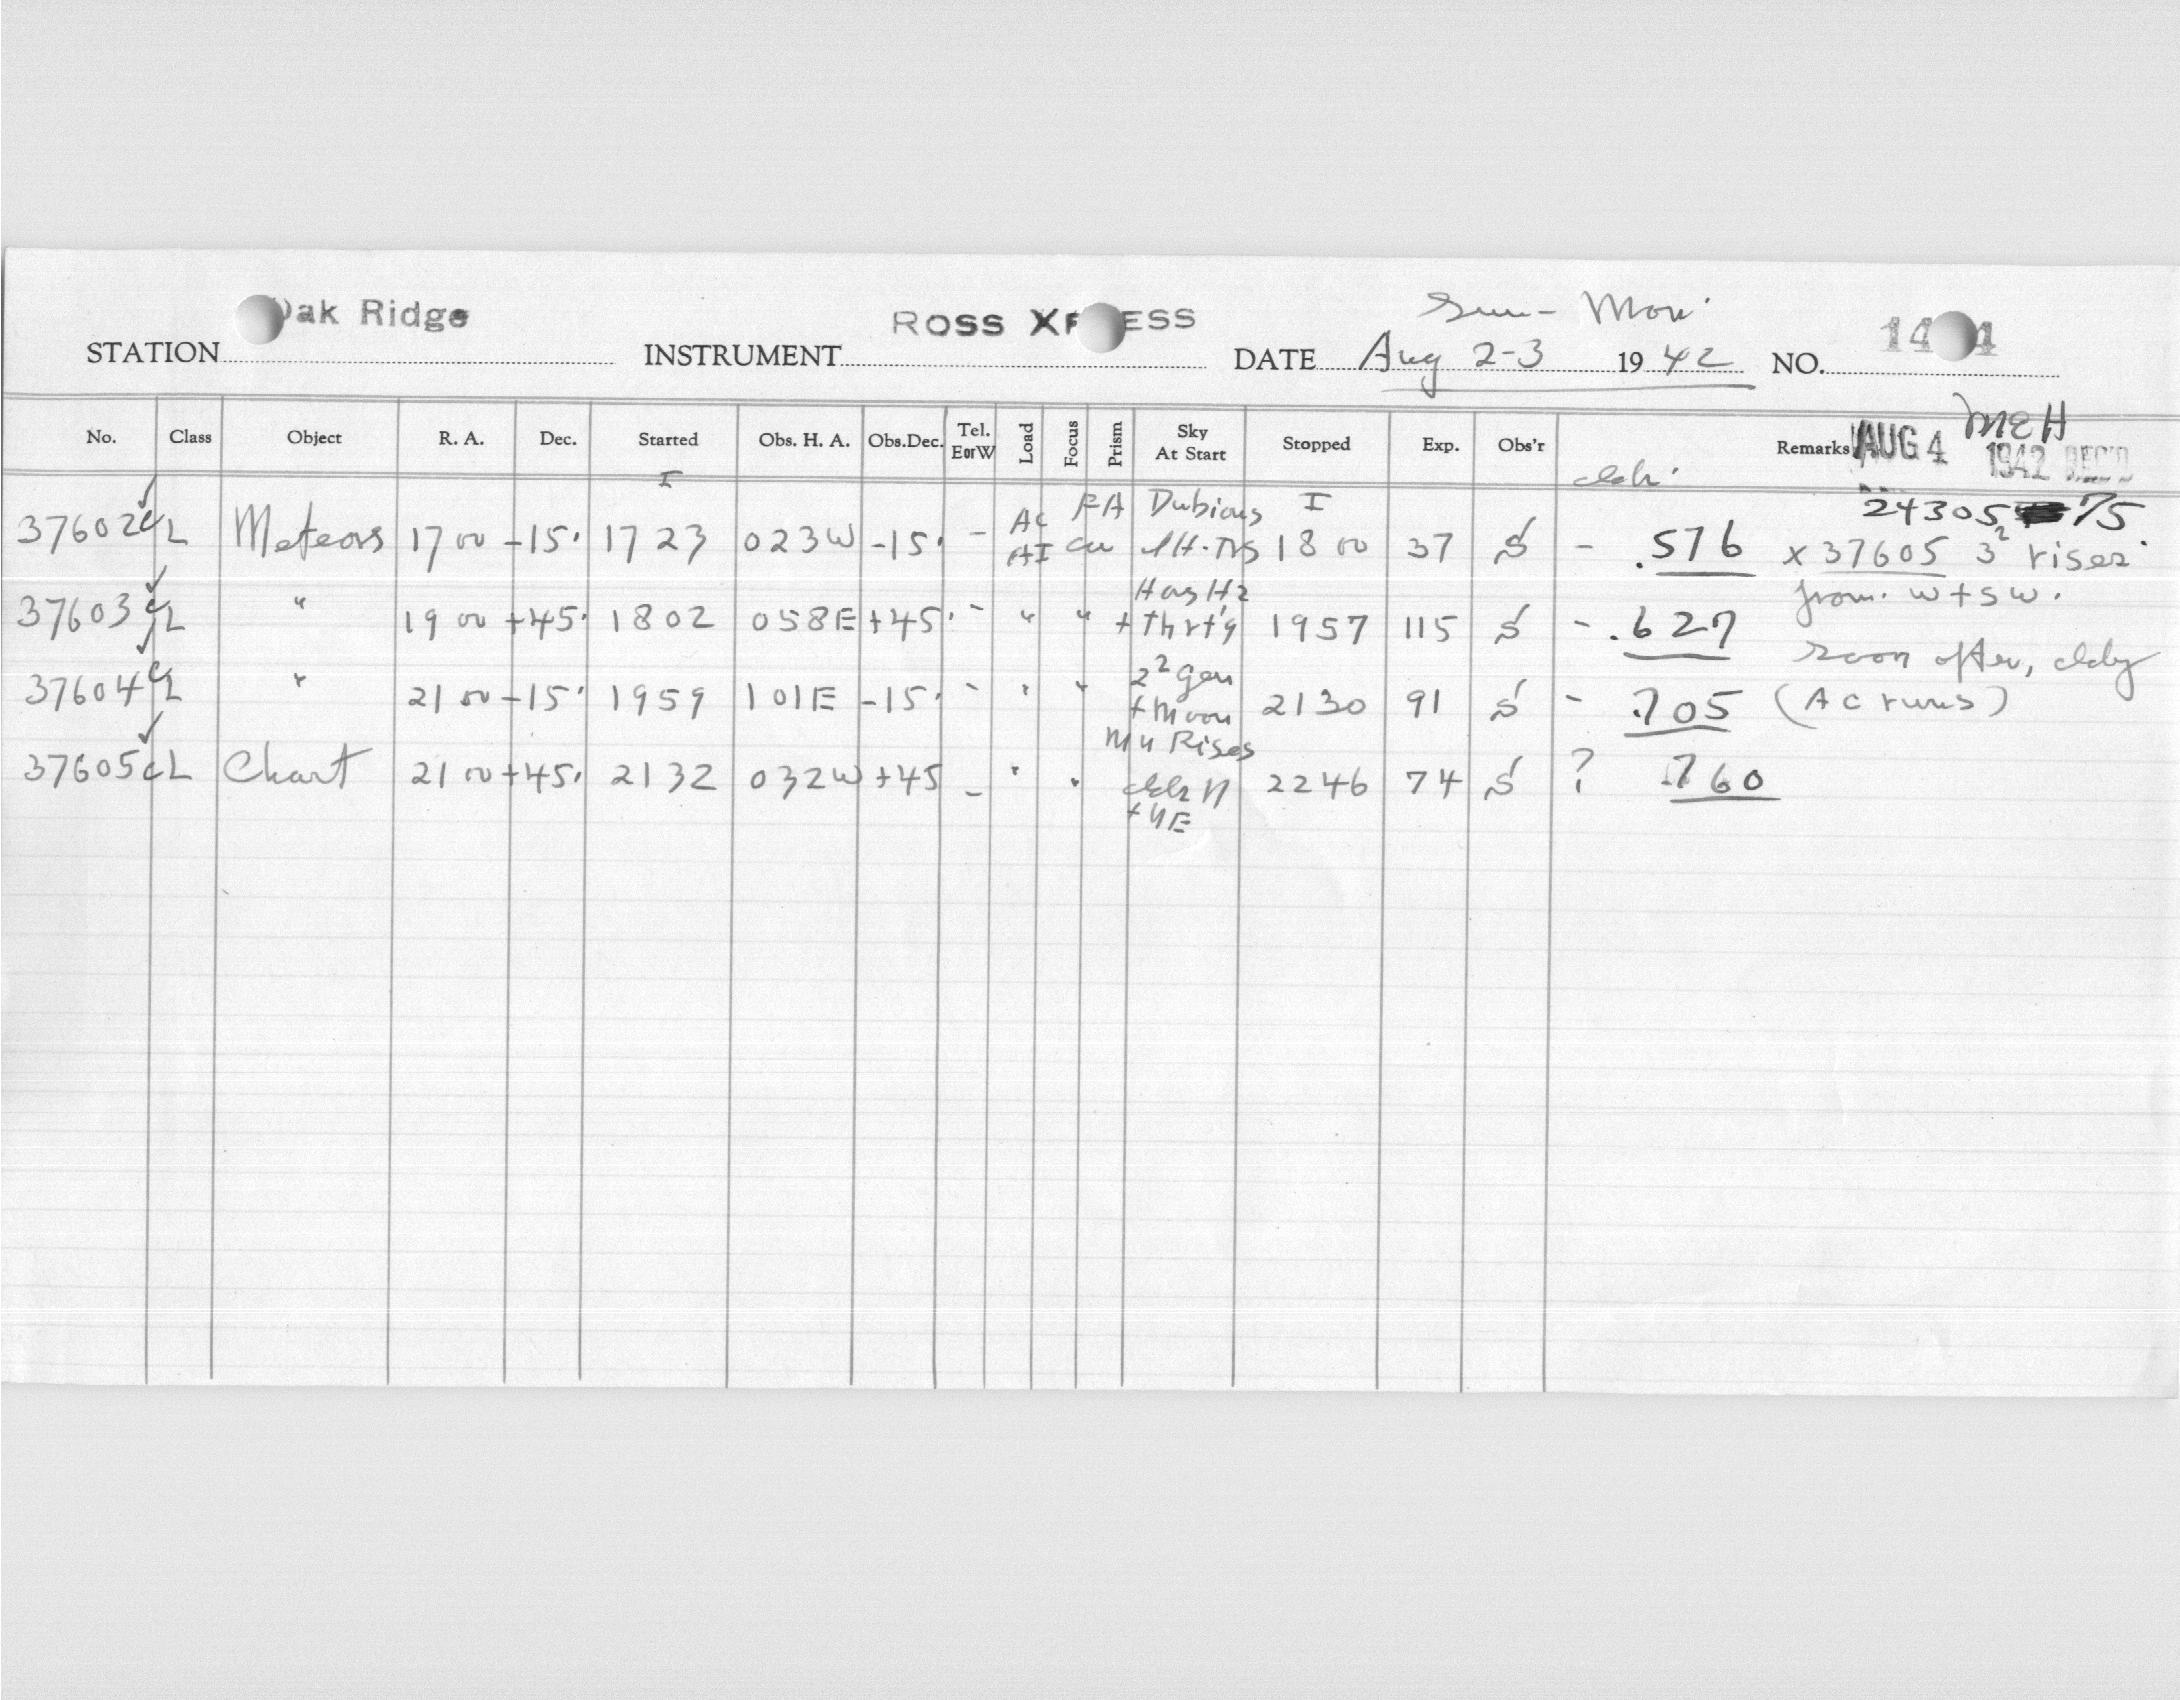 Oak Ridge ROSS XPRESS Sun - Mon.
STATION INSTRUMENT DATE Aug 2-3 1942 NO. 14 4
No. Class Object R. A. Dec. Started Obs. H. A. Obs.Dec. Tel. EorW Load Focus Prism Sky At Start Stopped Exp. Obs'r Remarks AUG 4 1942 REC'D MEH
I
24305 75
37602 L Meteors 17 00 -15° 17 23 023W -15° - AC AI FA Dubious I 18 00 37 S - .576 x 37605 3² rises
from W + SW.
37603 L " 19 00 +45° 1802 058E +45° - " " + Thrt'g 1957 115 S - .627
soon after, cldy
37604 L " 21 00 -15° 1959 101E -15° - " " 2² gen + Moon 2130 91 S - .705 (AC runs)
37605 cL Chart 21 00 +45° 2132 032W +45 - " " Mn Rises N + NE 2246 74 S ? .760